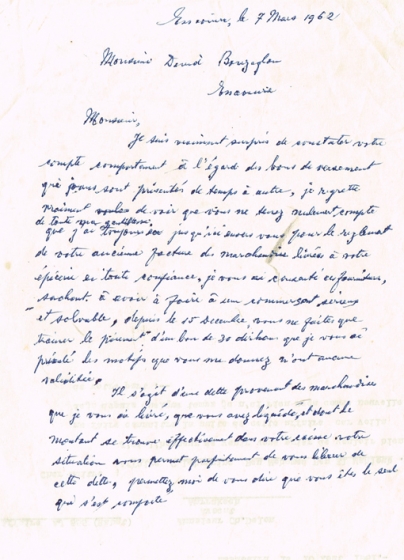 Essaouira, le 7 Mars 1962
Monsieur David Bouzaglou
Essaouira
Monsieur,
Je suis vraiment surpris de constater votre
compte comportement à l'égard des bons de versement
qui vous sont présentés de temps à autre, je regrette
vraiment de voir que vous ne tenez nullement compte
de toute ma gentillesse
que j'ai toujours eu jusqu'ici envers vous pour le règlement
de votre ancienne facture de marchandise livrée à votre
épicerie en toute confiance, je vous ai
sachant à avoir à faire à un commerçant sérieux
et solvable, depuis le 15 Décembre, vous ne faites que
trainer le paiement d'un bon de 30 dirhams que je vous ai
présenté les motifs que vous me donnez n'ont aucune
validité.
Il s'agit d'une dette provenant des marchandises
que je vous ai livré, que vous avez liquidé, et dont le
montant se trouve effectivement dans votre caisse votre
situation vous permet parfaitement de vous libérer de
cette dette, permettez moi de vous dire que vous êtes le seul
qui s'est comporté